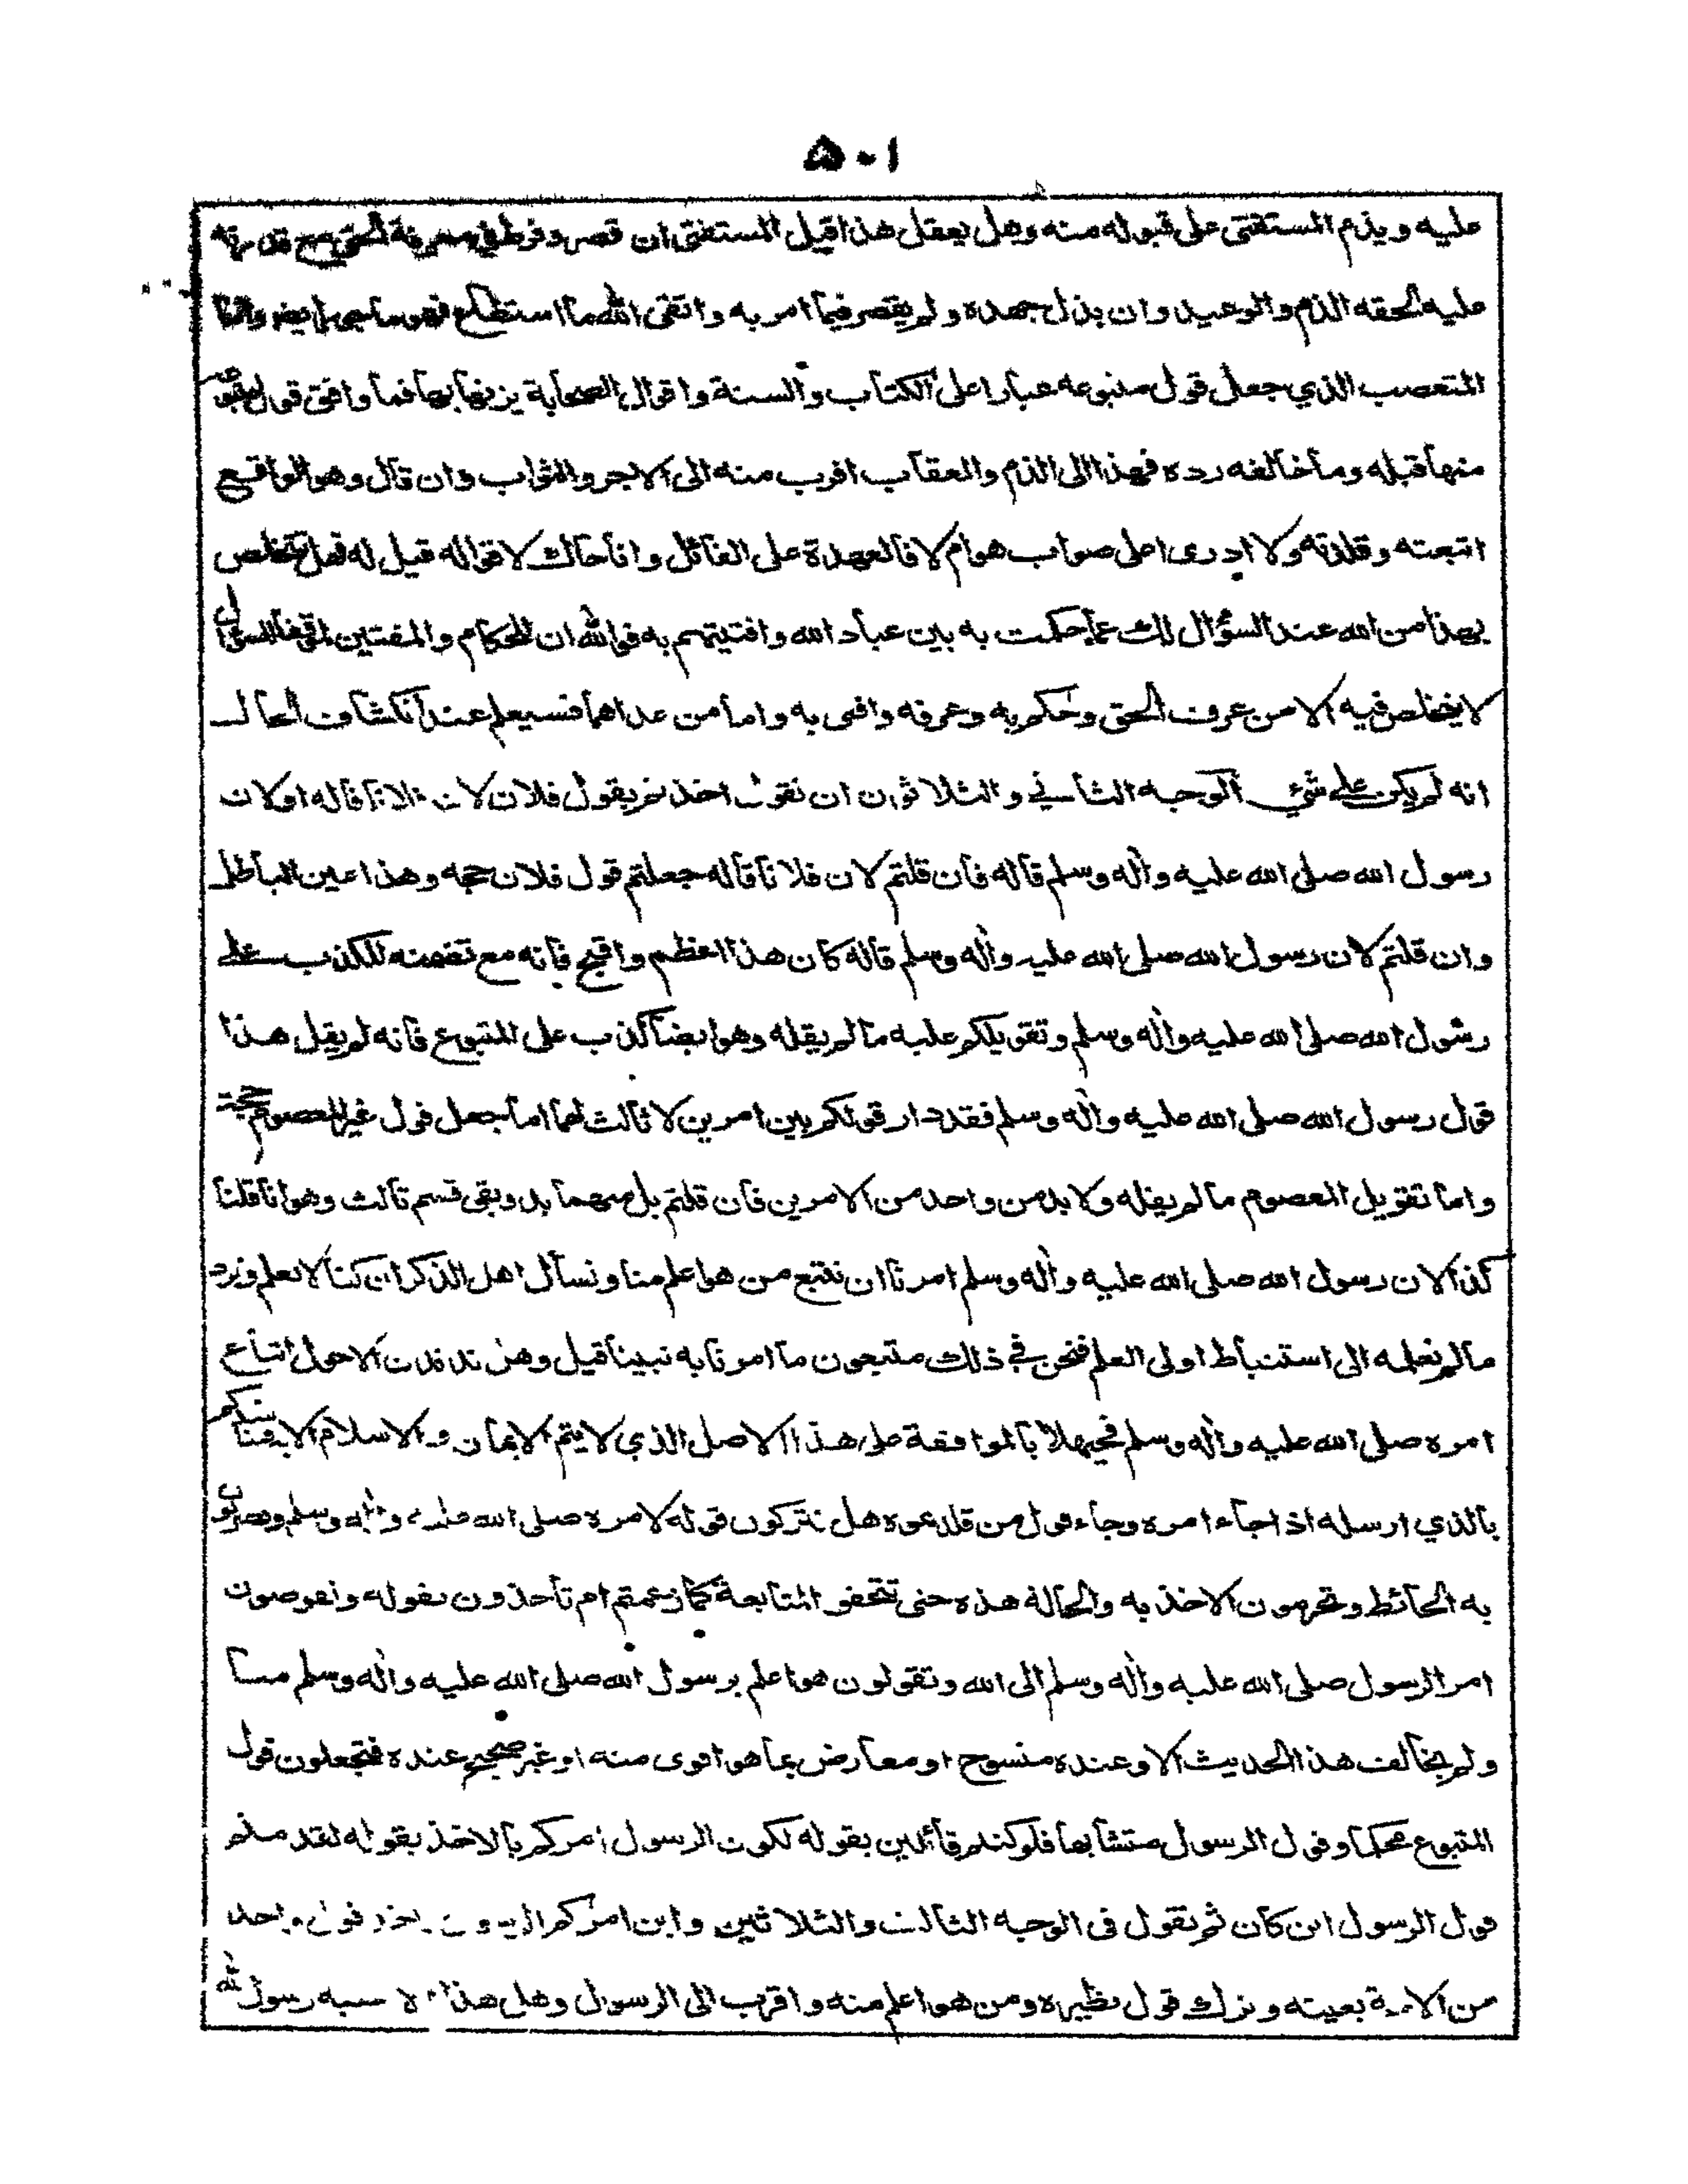 ٥٠١
عليه ويذم المستفتى على قبوله منه وهل يعقل هذا قيل المستفتى ان قصر وفرط في معرفة الحق مع قدرته
عليه لحقه الذم والوعيد وان بذل جهده ولم يقصر فيما امر به واتقى الله ما استطاع فهو ماجور ايضا واما
المتعصب الذي جعل قول متبوعه عيارا على الكتاب والسنة واقوال الصحابة يزنها بها فما وافق قول متبوعه
منها قبله وما خالفه رده فهذا الى الذم والعقاب اقرب منه الى الاجر والثواب وان قال وهو الواقع
اتبعته وقلدته ولا ادرى اعلى صواب هو ام لا فالعهدة على القائل وانا حاك لاقواله قيل له فهل تتخلص
بهذا من الله عند السؤال لك عما حكمت به بين عباد الله وافتيتهم به فوالله ان للحكام والمفتين لموقفا للسؤال
لا يتخلص فيه الا من عرف الحق وحكم به وعرفه وافتى به واما من عداهما فسيعلم عند انكشاف الحال
انه لم يكن على شئ الوجه الثاني والثلاثون ان نقول اخذتم بقول فلان لان فلانا قاله او لان
رسول الله صلى الله عليه وآله وسلم قاله فان قلتم لان فلانا قاله جعلتم قول فلان حجه وهذا عين الباطل
وان قلتم لان رسول الله صلى الله عليه وآله وسلم قاله كان هذا اعظم واقبح فانه مع تضمنه للكذب على
رسول الله صلى الله عليه وآله وسلم وتقويلكم عليه ما لم يقله وهو ايضا كذب على المتبوع فانه لم يقل هذا
قول رسول الله صلى الله عليه وآله وسلم فقد دار قولكم بين امرين لا ثالث لهما اما جعل قول غير المعصوم حجة
واما تقويل المعصوم ما لم يقله ولا بد من واحد من الامرين فان قلتم بل منهما بد وبقى قسم ثالث وهو انا قلنا
كذا لان رسول الله صلى الله عليه وآله وسلم امرنا ان نتبع من هو اعلم منا ونسأل اهل الذكر ان كنا لا نعلم ونرد
ما لم نعلمه الى استنباط اولى العلم فنحن في ذلك متبعون ما امرنا به نبينا قيل وهل ندندن الا حول اتباع
امره صلى الله عليه وآله وسلم فحيهلا بالموافقة على هذا الاصل الذي لا يتم الايمان والاسلام الا به فنناشدكم
بالذي ارسله اذا جاء امره وجاء قول من قلدتموه هل تتركون قوله لامره صلى الله عليه وآله وسلم وتضربون
به الحائط وتحرمون الاخذ به والحالة هذه حتى تتحقق المتابعة كما زعمتم ام تأخذون بقوله وتفوضون
امر الرسول صلى الله عليه وآله وسلم الى الله وتقولون هو اعلم برسول الله صلى الله عليه وآله وسلم منا
ولم يخالف هذا الحديث الا وعنده منسوخ او معارض بما هو اقوى منه او غير صحيح عنده فتجعلون قول
المتبوع محكما وقول الرسول متشابها فلو كنتم قائلين بقوله لكون الرسول امركم بالاخذ بقوله لقدمتم
قول الرسول اين كان ثم نقول فى الوجه الثالث والثلاثين واين امركم الرسول باخذ قول واحد
من الامة بعينه وترك قول نظيره ومن هو اعلم منه واقرب الى الرسول وهل هذا الا نسبه رسول الله